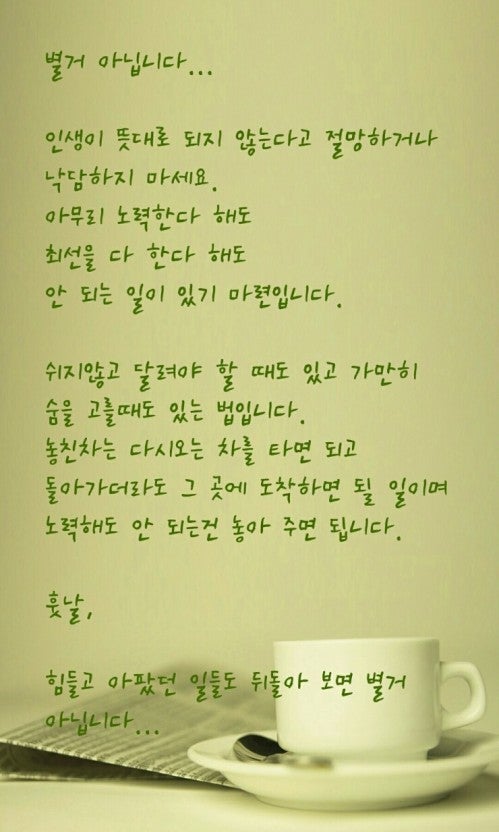 별거 아닙니다...
인생이 뜻대로 되지 않는다고 절망하거나
낙담하지 마세요.
아무리 노력한다 해도
최선을 다 한다 해도
안 되는 일이 있기 마련입니다.
쉬지않고 달려야 할 때도 있고 가만히
숨을 고를때도 있는 법입니다.
놓친차는 다시오는 차를 타면 되고
돌아가더라도 그 곳에 도착하면 될 일이며
노력해도 안 되는건 놓아 주면 됩니다.
훗날,
힘들고 아팠던 일들도 뒤돌아 보면 별거
아닙니다...